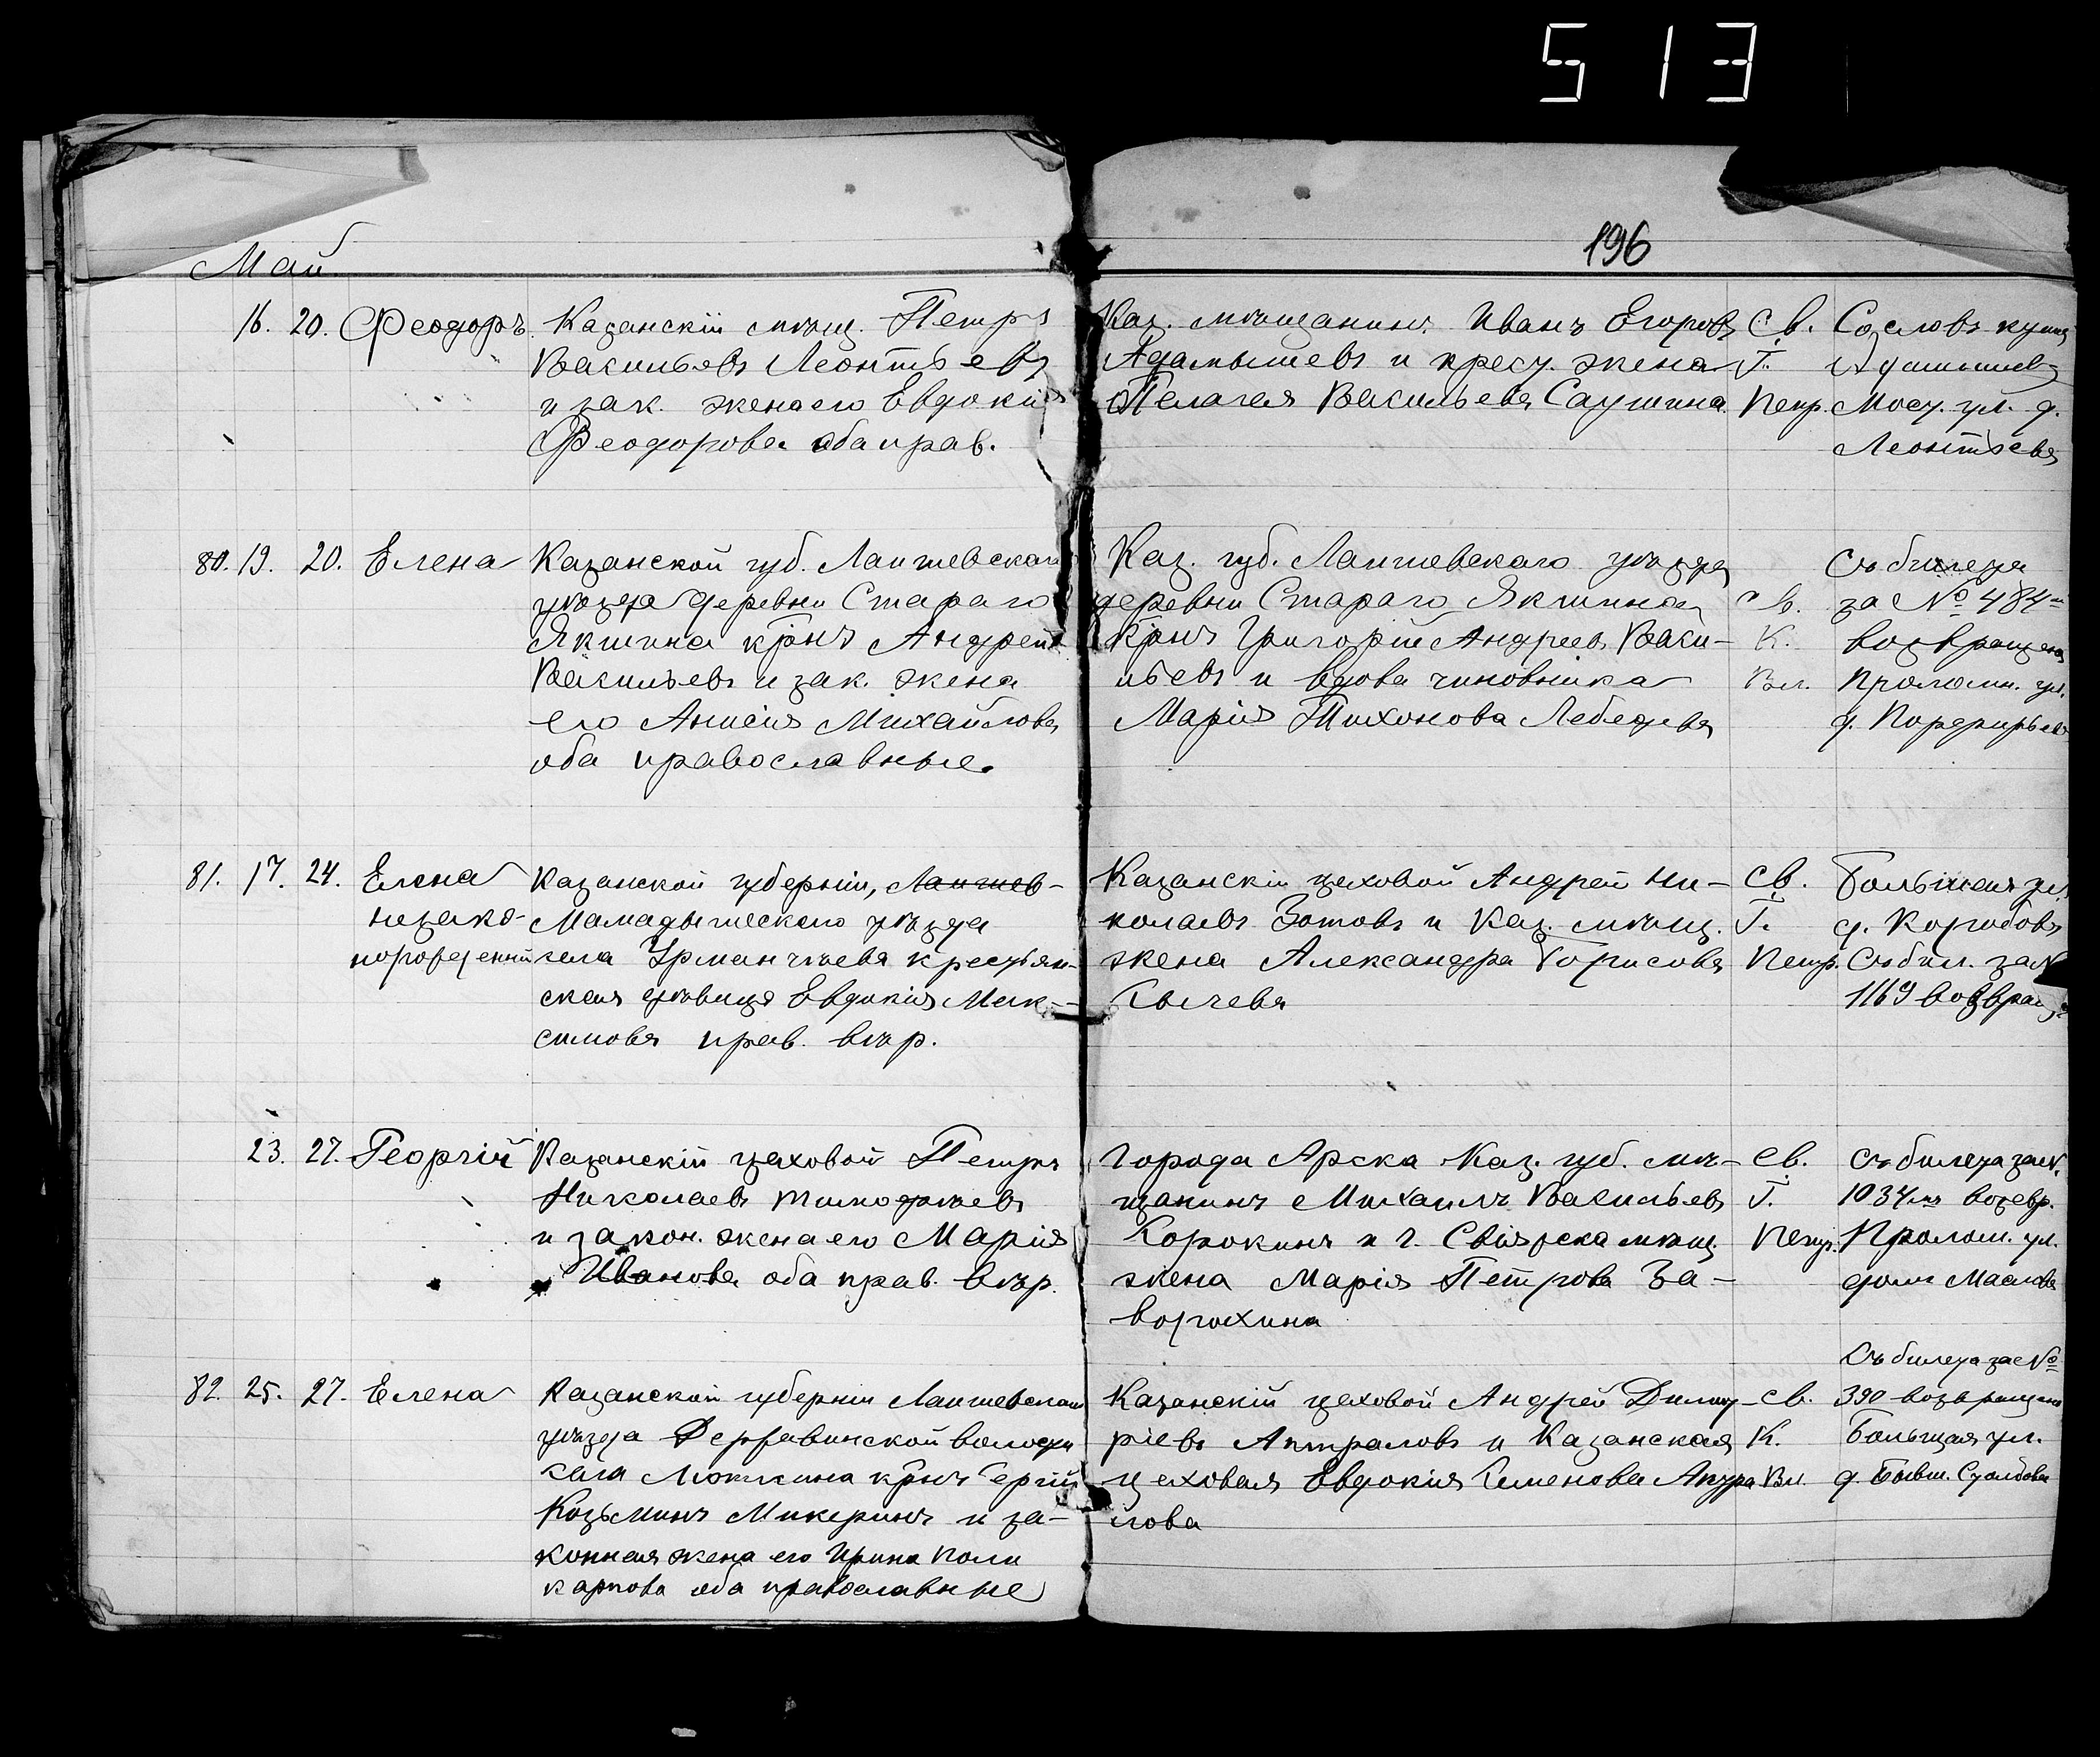 513
196
Май
16. 20. Феодоръ. Казанскій мѣщ. Петръ
Васильевъ Леонтьевъ
и зак. жена его Евдокія
Феодорова оба прав.
Каз. мѣщанинъ Иванъ Егоровъ
Адамышевъ и крест. жена
Пелагея Васильева Саушина.
Св.
Г.
Петр.
Мост. ул. д.
Леонтьева
80. 19. 20. Елена Казанской губ. Лаишевскаго
уѣзда деревни Стараго
Якшина крнъ Андрей
Васильевъ и зак. жена
его Анисія Михайлова
оба православные.
Каз. губ. Лаишевскаго уѣзда
деревни Стараго Якшина
крнъ Григорій Андреевъ Васи-
льевъ и вдова чиновника
Марія Тихонова Лебедева
Св.
К.
Вл.
Съ билета
за № 484
возвращена
Проломн. ул.
д. Порфирьева
81. 17. 24. Елена Казанской губерніи, Лаишев-
незако- Мамадышскаго уѣзда
норожденній села Урманчеева крестьян-
ская дѣвица Евдокія Мак-
симова прав. вѣр.
Казанскій цеховой Андрей Ни-
колаевъ Зотовъ и Каз. мѣщ.
жена Александра Борисова
Сычева
Св.
Г.
Петр.
Большая ул.
д. Коробова
Съ бил. за №
1169 возвращ.
23. 27. Георгій Казанскій цеховой Петръ
Николаевъ Тимофѣевъ
и закон. жена его Марія
Иванова оба прав. вѣр.
Города Арска Каз. губ. мѣ-
щанинъ Михаилъ Васильевъ
Сорокинъ и г. Свіяжска мѣщ.
жена Марія Петрова За-
ворохина
Св.
Г.
Петр.
Съ билета за №
1034 возвр.
Пролом. ул.
домъ Маслова
82. 25. 27. Елена Казанской губерніи Лаишевскаго
уѣзда Державинской волости
села крнъ Сергій
Козьминъ Микеринъ и за-
конная жена его Ирина Поли
карпова оба православные
Казанскій цеховой Андрей Димит-
ріевъ и Казанская
цеховая Евдокія Семенова
лова
Св.
К.
Вл.
Съ билета за №
390 возвращена
Большая ул.
д. бывш. Столбова